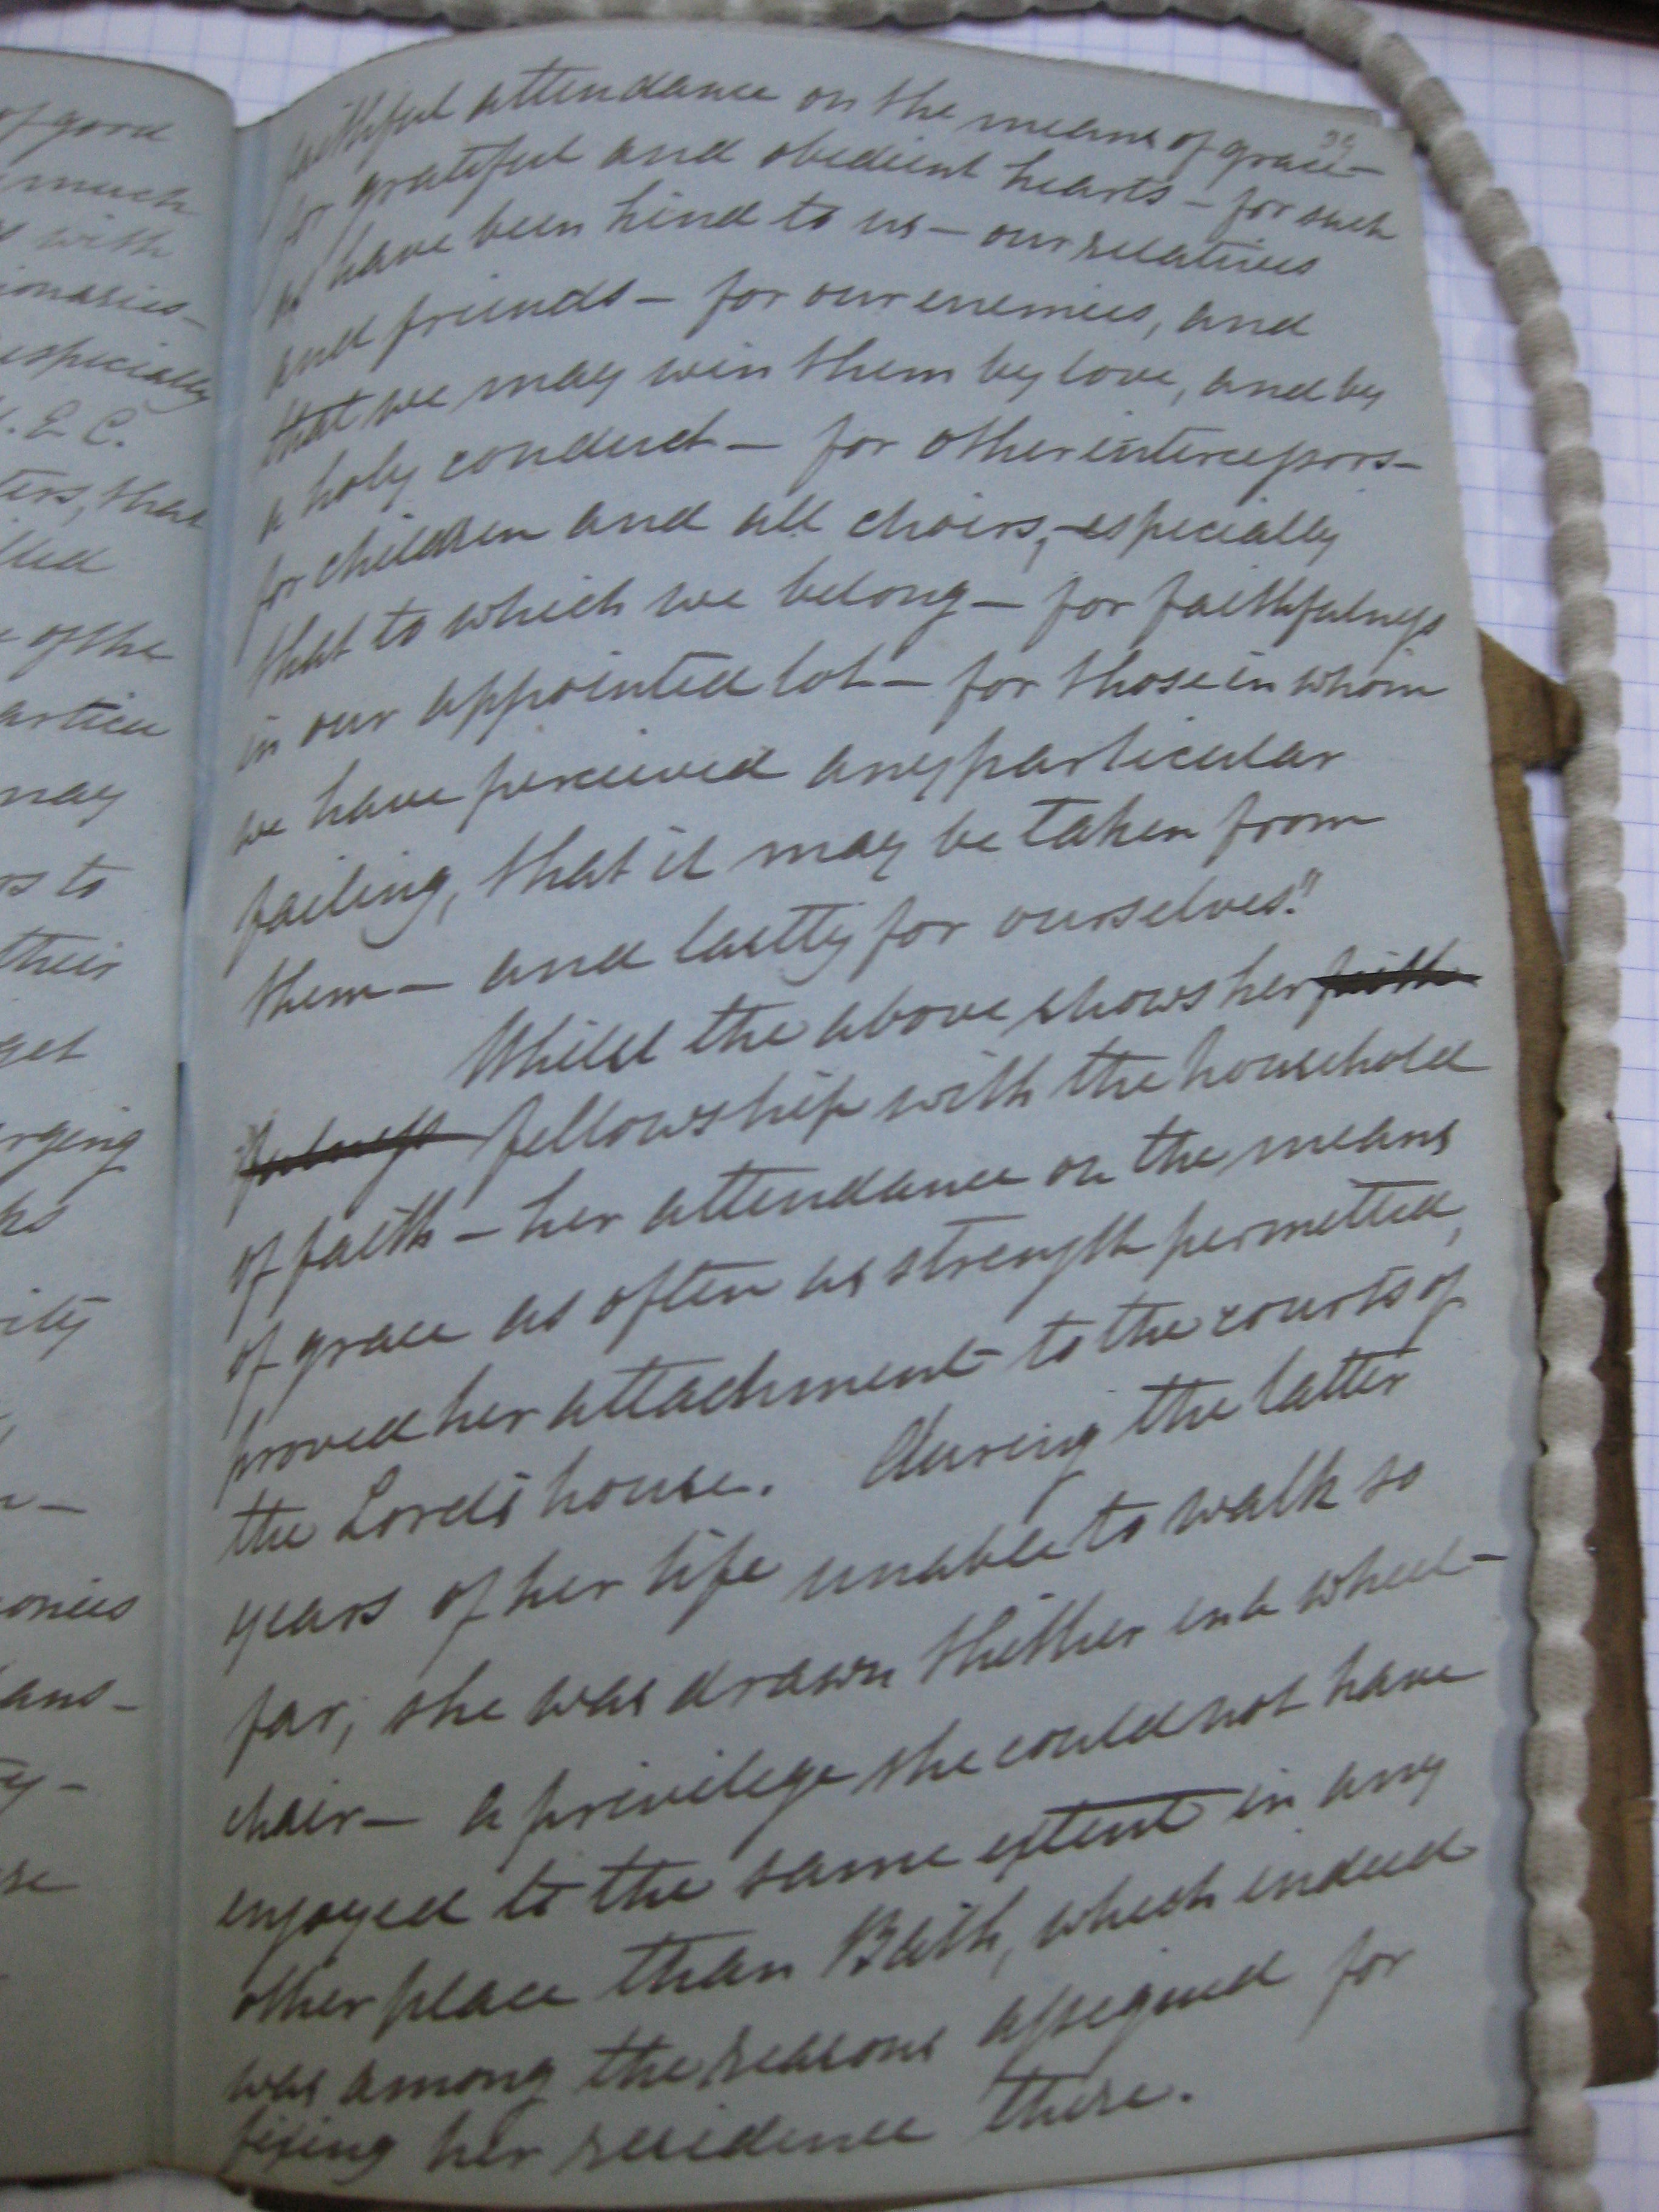 of good
much
with
ionaries-
especially
E C.
ters, that
lled
of the
articu
may
rs to
their
get
rging
ks
ity
onies
ans-
ty-
se
faithful attendance on the means of grace-
for grateful and obedient hearts - for such
as have been kind to us - our relatives
and friends - for our enemies, and
that we may win them by love, and by
a holy conduct - for other intercessors-
for children and all choirs, - especially
that to which we belong - for faithfulness
in our appointed lot - for those in whom
we have perceived any particular
failing, that it may be taken from
them - and lastly for ourselves."
Whilst the above shows her faith
fulness fellowship with the household
of faith - her attendance on the means
of grace as often as strength permitted,
proved her attachment to the courts of
the Lord's house. During the latter
years of her life unable to walk so
far, she was drawn thither in a wheel-
chair - a privilege she could not have
enjoyed to the same extent in any
other place than Bath, which indeed
was among the reasons assigned for
fixing her residence there.